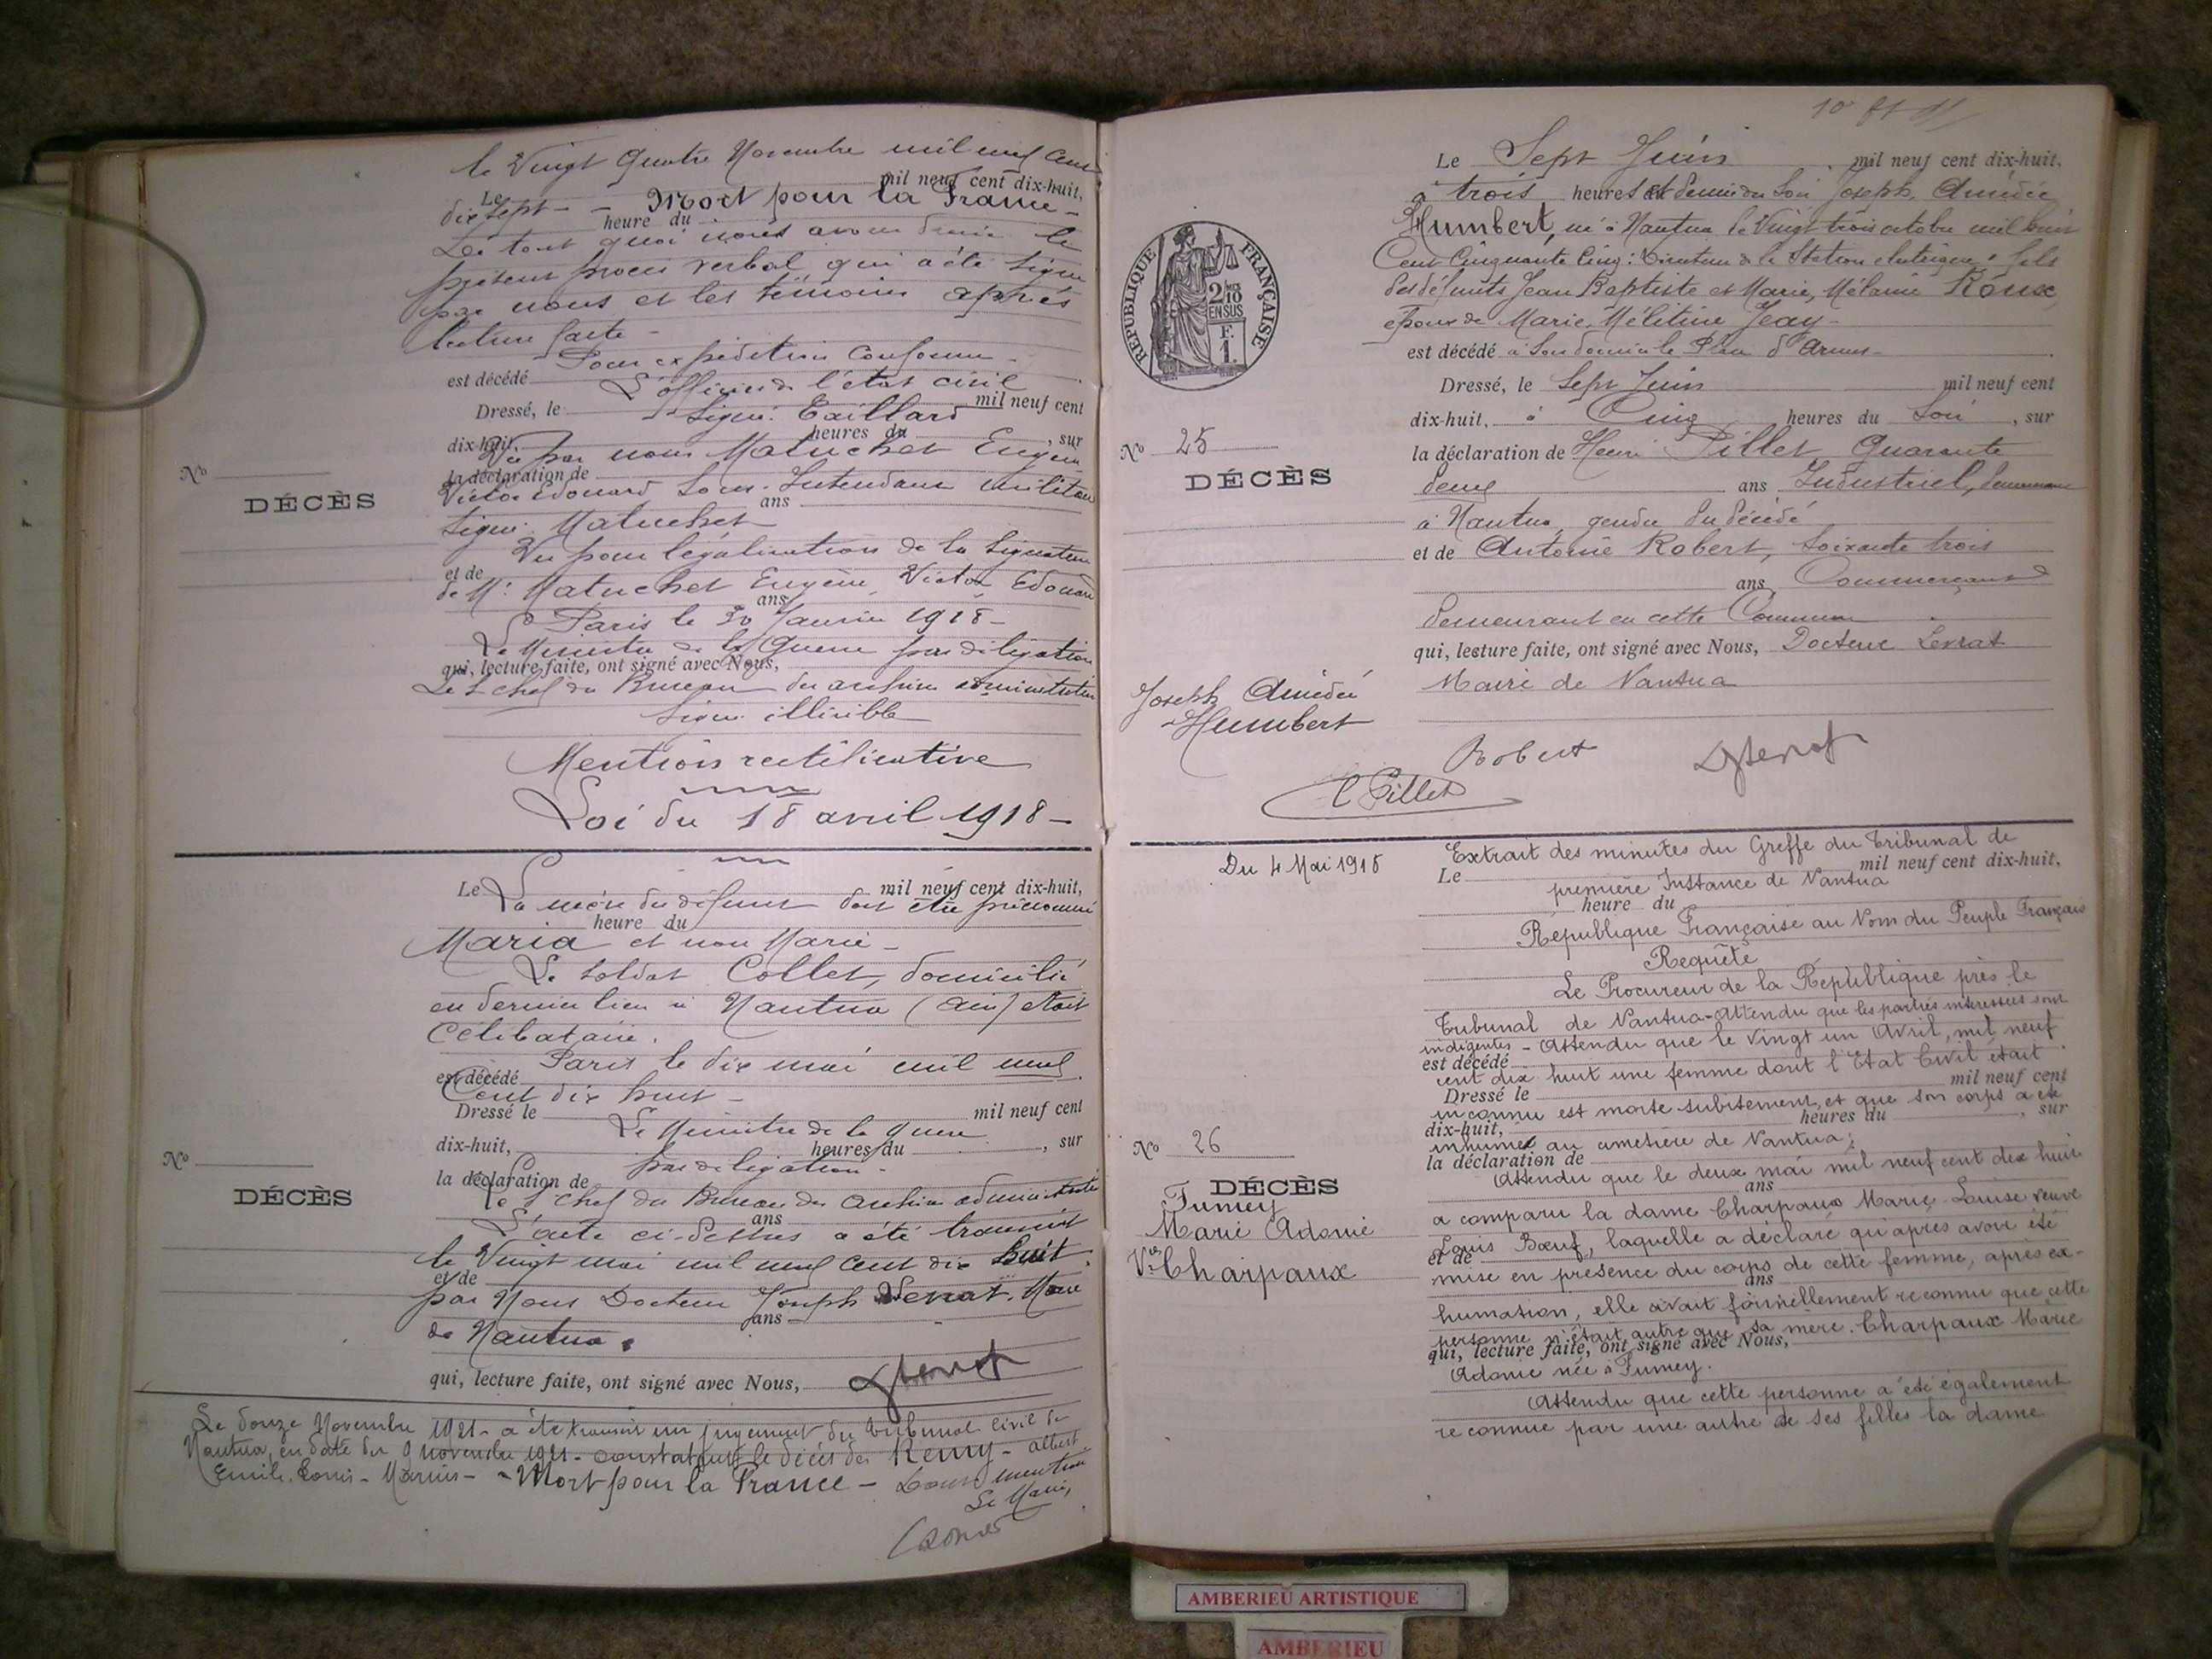 le Vingt Quatre Novembre mil neuf cent
Le mil neuf cent dix-huit,
dix sept - - Mort pour la France -
heure du
De tout quoi nous avons dressé le
présent procès verbal qui a été signé
par nous et les témoins après
lecture faite -
Pour expédition conforme -
est décédé
L'officier de l'état civil
Dressé, le mil neuf cent
Signé: Taillard
dix-huit, heures du , sur
Vu par nous Matuchet Eugène
la déclaration de
Victor Edouard Sous-Intendant militaire
ans
Signé: Matuchet
Vu pour légalisation de la signature
et de
de Mr. Matuchet Eugène, Victor Edouard
ans
Paris le 30 Janvier 1918 -
Le Ministre de la Guerre par délégation
qui, lecture faite, ont signé avec Nous,
Le chef du Bureau des archives administratives
Signé illisible
Mention rectificative
Loi du 18 avril 1918 -
Le mil neuf cent dix-huit,
La mère du défunt doit être prénommée
heure du
Maria et non Marie -
Le soldat Collet, domicilié
en dernier lieu à Nantua (Ain) était
Célibataire.
Paris le dix mai mil neuf
est décédé
Cent dix huit -
Dressé le mil neuf cent
Le Ministre de la guerre
dix-huit, heures du , sur
par délégation -
la déclaration de
le chef du Bureau des archives administratives
ans
L'acte ci-dessus a été transcrit
le Vingt mai mil neuf cent dix huit
et de
par Nous Docteur Joseph Levrat, Maire
ans
de Nantua.
qui, lecture faite, ont signé avec Nous,
Nº
DÉCÈS
Nº
DÉCÈS
Le douze Novembre 1921 - a été transcrit un jugement du tribunal civil de
Nantua, en date du 9 novembre 1921 - constatant le décès de Remy - Albert
Emile - Louis - Marius - - Mort pour la France - Dont mention
Le Maire,
Le Sept Juin mil neuf cent dix-huit,
à trois heures et demie du Soir Joseph, Amédée
Humbert, né à Nantua le Vingt trois octobre mil huit
Cent Cinquante Cinq: Directeur de la Station électrique, fils
des défunts Jean Baptiste et Marie, Mélanie Roux,
époux de Marie, Mélitine Jeay -
est décédé à son domicile Place d'Armes -
Dressé, le Sept Juin mil neuf cent
dix-huit, à Cinq heures du Soir , sur
la déclaration de Henri Pillet Quarante
deux ans Industriel, demeurant
à Nantua, gendre du décédé
et de Antoine Robert, soixante trois
ans, Commerçant
demeurant en cette Commune
qui, lecture faite, ont signé avec Nous, Docteur Levrat
Maire de Nantua
Robert
Pillet
RÉPUBLIQUE FRANÇAISE
2/10
EN SUS
F.
1.
Nº 25
DÉCÈS
Joseph Amédée
Humbert
Du 4 Mai 1918
Extrait des minutes du Greffe du Tribunal de
Le mil neuf cent dix-huit,
première Instance de Nantua
heure du
République Française au Nom du Peuple Français
Requête
Le Procureur de la République près le
Tribunal de Nantua - Attendu que les parties intéressées sont
indigentes - Attendu que le vingt un Avril, mil neuf
est décédé
cent dix huit une femme dont l'Etat Civil était
Dressé le mil neuf cent
inconnu est morte subitement, et que son corps a été
dix-huit, heures du , sur
inhumé au cimetière de Nantua;
la déclaration de
Attendu que le deux mai mil neuf cent dix huit
ans
a comparu la dame Charpaux Marie-Louise veuve
Louis Bœuf, laquelle a déclaré qu'après avoir été
et de
mise en présence du corps de cette femme, après ex-
ans
humation, elle avait formellement reconnu que cette
personne n'était autre que sa mère. Charpaux Marie
qui, lecture faite, ont signé avec Nous,
Adonie née à Fumey.
Attendu que cette personne a été également
reconnue par une autre de ses filles la dame
Nº 26
DÉCÈS
Fumey
Marie Adonie
Vve Charpaux
AMBERIEU ARTISTIQUE
AMBERIEU